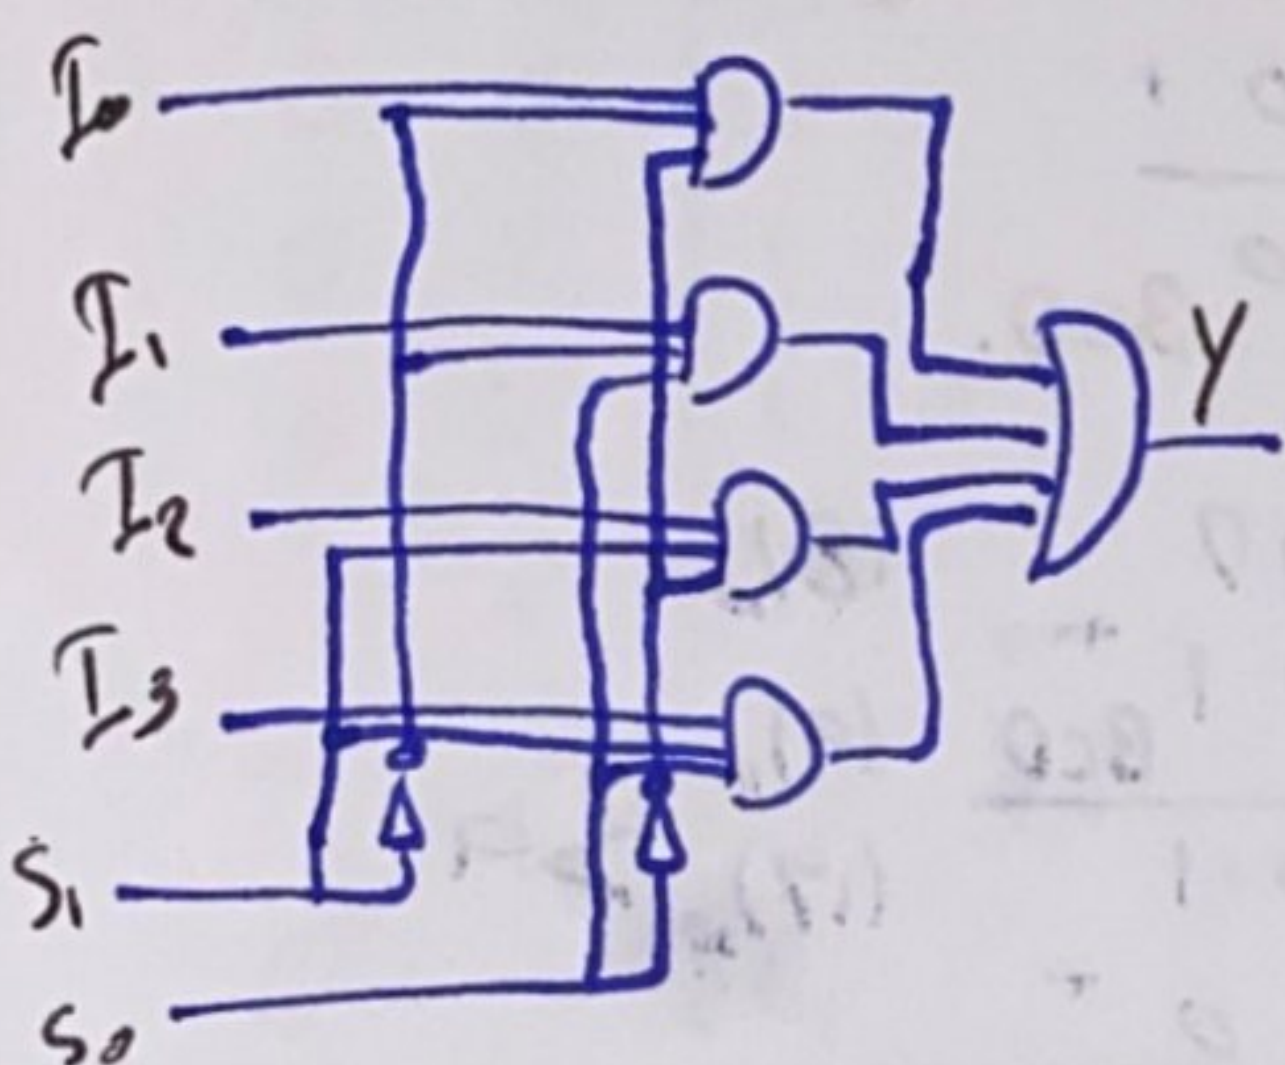 I0
I1
Y
I2
I3
S1
S0